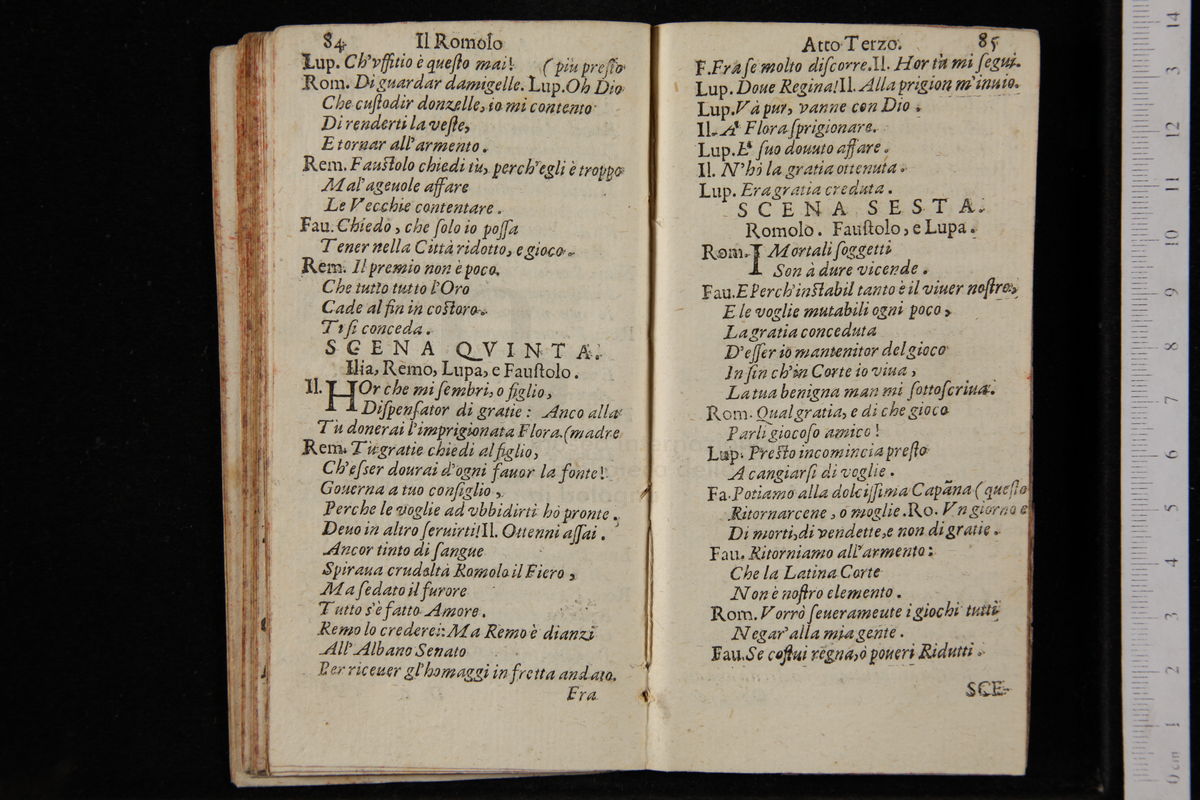 84 Il Romolo
Lup. Ch'vffitio è questo mai! (più presto
Rom. Di guardar damigelle. Lup. Oh Dio
Che custodir donzelle, io mi contento
Di renderti la veste,
E tornar all'armento.
Rem. Faustolo chiedi tù, perch'egli è troppo
Mal'ageuole affare
Le Vecchie contentare.
Fau. Chiedo, che solo io possa
Tener nella Città ridotto, e gioco.
Rem. Il premio non è poco.
Che tutto tutto l'Oro
Cade al fin in costoro.
Ti si conceda.
SCENA QVINTA.
Ilia, Remo, Lupa, e Faustolo.
Il. HOr che mi sembri, o figlio,
Dispensator di gratie: Anco alla
Tu donerai l'imprigionata Flora. (madre
Rem. Tu gratie chiedi al figlio,
Ch'esser dourai d'ogni fauor la fonte!
Gouerna a tuo consiglio,
Perche le voglie ad vbbidirti hò pronte.
Deuo in altro seruirti! Il. Ottenni assai.
Ancor tinto di sangue
Spiraua crudeltà Romolo il Fiero,
Ma sedato il furore
Tutto s'è fatto Amore.
Remo lo crederei: Ma Remo è dianzi
All'Albano Senato
Per riceuer gl'homaggi in fretta andato.
Fra
Atto Terzo. 85
F. Fra se molto discorre. Il. Hor tù mi segui.
Lup. Doue Regina! Il. Alla prigion m'inuio.
Lup. Và pur, vanne con Dio.
Il. A' Flora sprigionare.
Lup. E' suo douuto affare.
Il. N'hò la gratia ottenuta.
Lup. Era gratia creduta.
SCENA SESTA.
Romolo. Faustolo, e Lupa.
Rom. I Mortali soggetti
Son à dure vicende.
Fau. E Perch'instabil tanto è il viuer nostro,
E le voglie mutabili ogni poco,
La gratia conceduta
D'esser io mantenitor del gioco
In sin ch'in Corte io viua,
La tua benigna man mi sottoscriua.
Rom. Qual gratia, e di che gioco
Parli giocoso amico!
Lup. Presto incomincia presto
A cangiarsi di voglie.
Fa. Potiamo alla dolcissima Capãna (questo
Ritornarcene, ò moglie. Ro. Vn giorno e
Di morti, di vendette, e non di gratie.
Fau. Ritorniamo all'armento:
Che la Latina Corte
Non è nostro elemento.
Rom. Vorrò seuerameute i giochi tutti
Negar'alla mia gente.
Fau. Se costui regna, ò poueri Ridutti.
SCE-